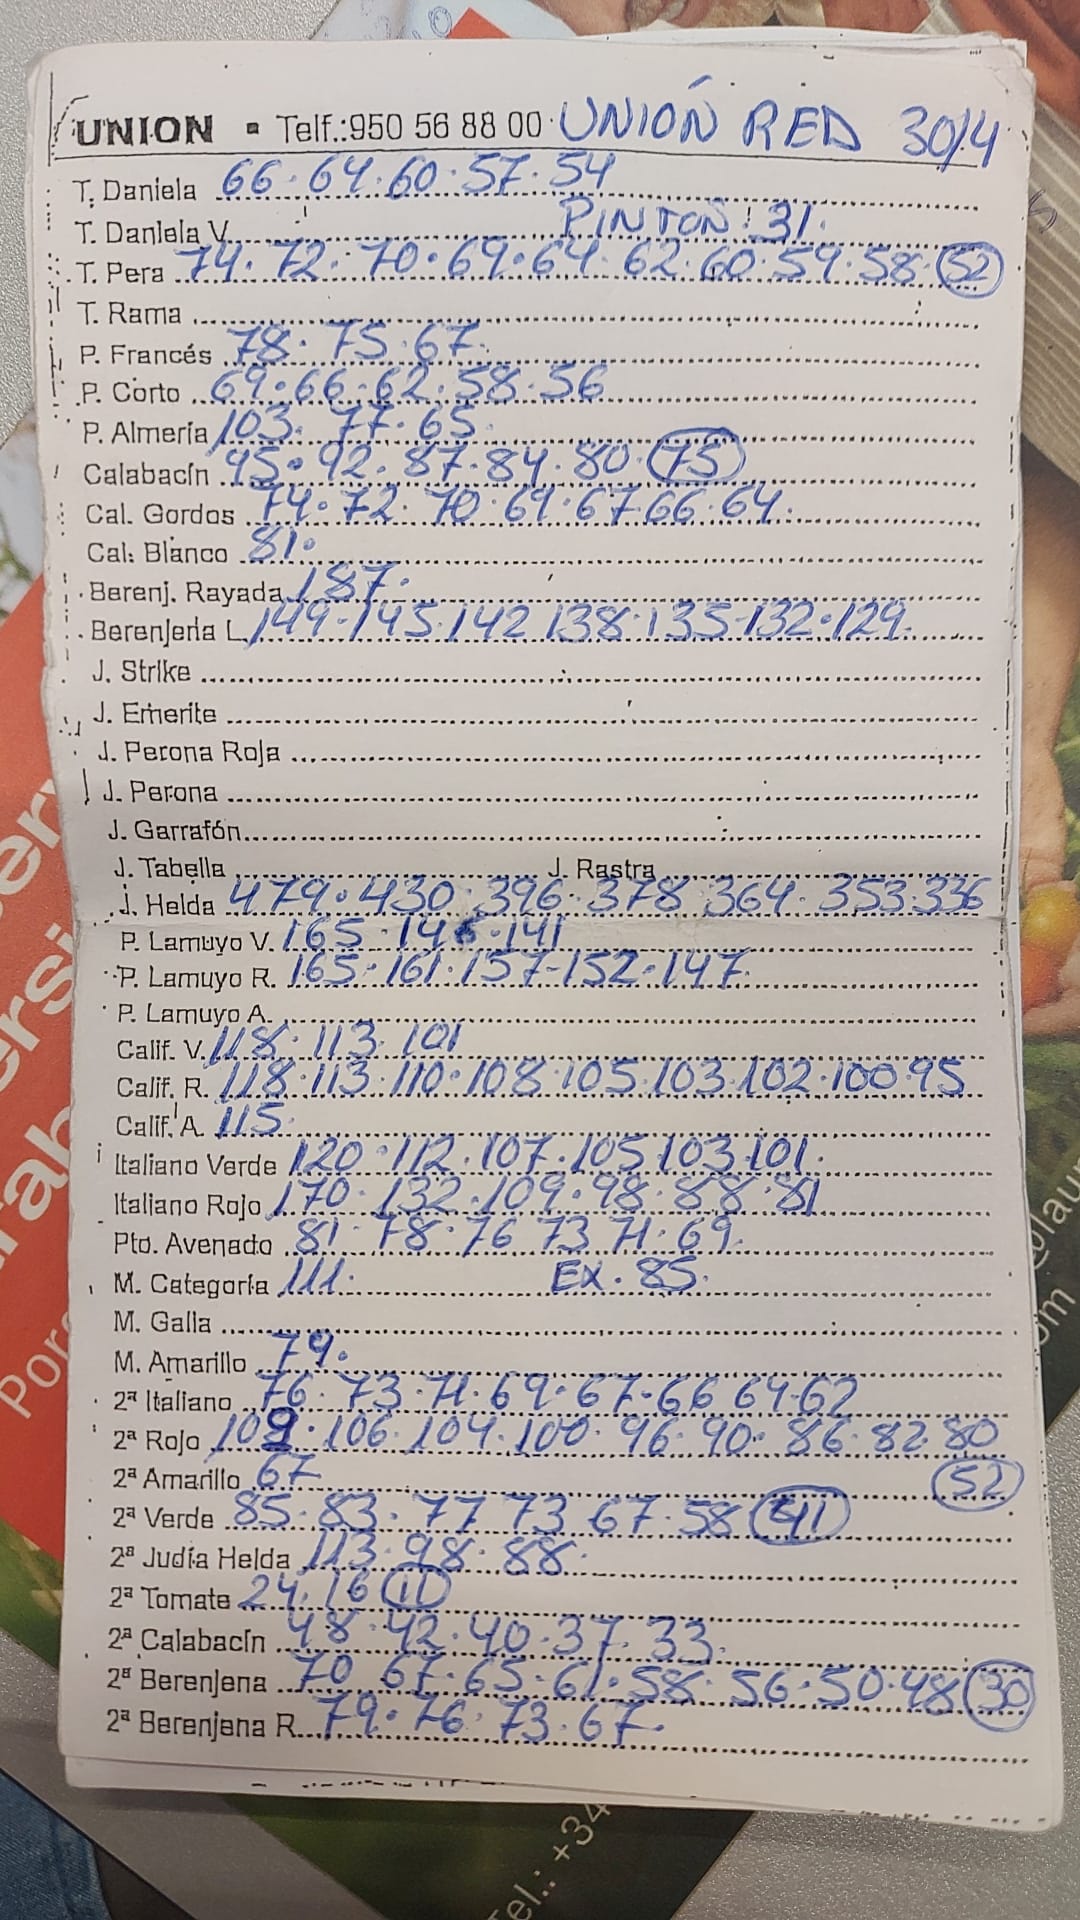 UNION ▪ Telf.:950 56 88 00 · UNIÓN RED 30/4
T. Daniela 66·64·60·57·54
T. Daniela V. PINTON! 31.
T. Pera 74·72·70·69·64·62·60·59·58·52
T. Rama
P. Francés 78·75·67.
P. Corto 69·66·62·58·56
P. Almería 103·77·65.
Calabacín 95·92·87·84·80·75
Cal. Gordos 74·72·70·69·67 66·64.
Cal. Blanco 81.
Berenj. Rayada 187.
Berenjena L. 149·145·142 138·135·132·129.
J. Strike
J. Emerite
J. Perona Roja
J. Perona
J. Garrafón
J. Tabella J. Rastra
J. Helda 479·430·396·378 364·353·336
P. Lamuyo V. 165·146·141
P. Lamuyo R. 165·161·157-152·147.
P. Lamuyo A.
Calif. V. 118·113·101
Calif. R. 118·113·110·108·105·103·102·100·95
Calif. A. 115
Italiano Verde 120·112·107·105·103·101.
Italiano Rojo 170·132·109·98·88·81
Pto. Avenado 81·78·76 73 71·69.
M. Categoría 111. EX. 85.
M. Galia
M. Amarillo 79.
2ª Italiano 76·73·71·69·67·66 64·62
2ª Rojo 109·106·104·100·96·90·86·82·80
2ª Amarillo 67 52
2ª Verde 85·83·77 73 67·58 41
2ª Judía Helda 113·98·88.
2ª Tomate 24·16 11
2ª Calabacín 48·42·40·37·33.
2ª Berenjena 70 67·65·61·58·56·50·48 30
2ª Berenjena R. 79·76·73·67.